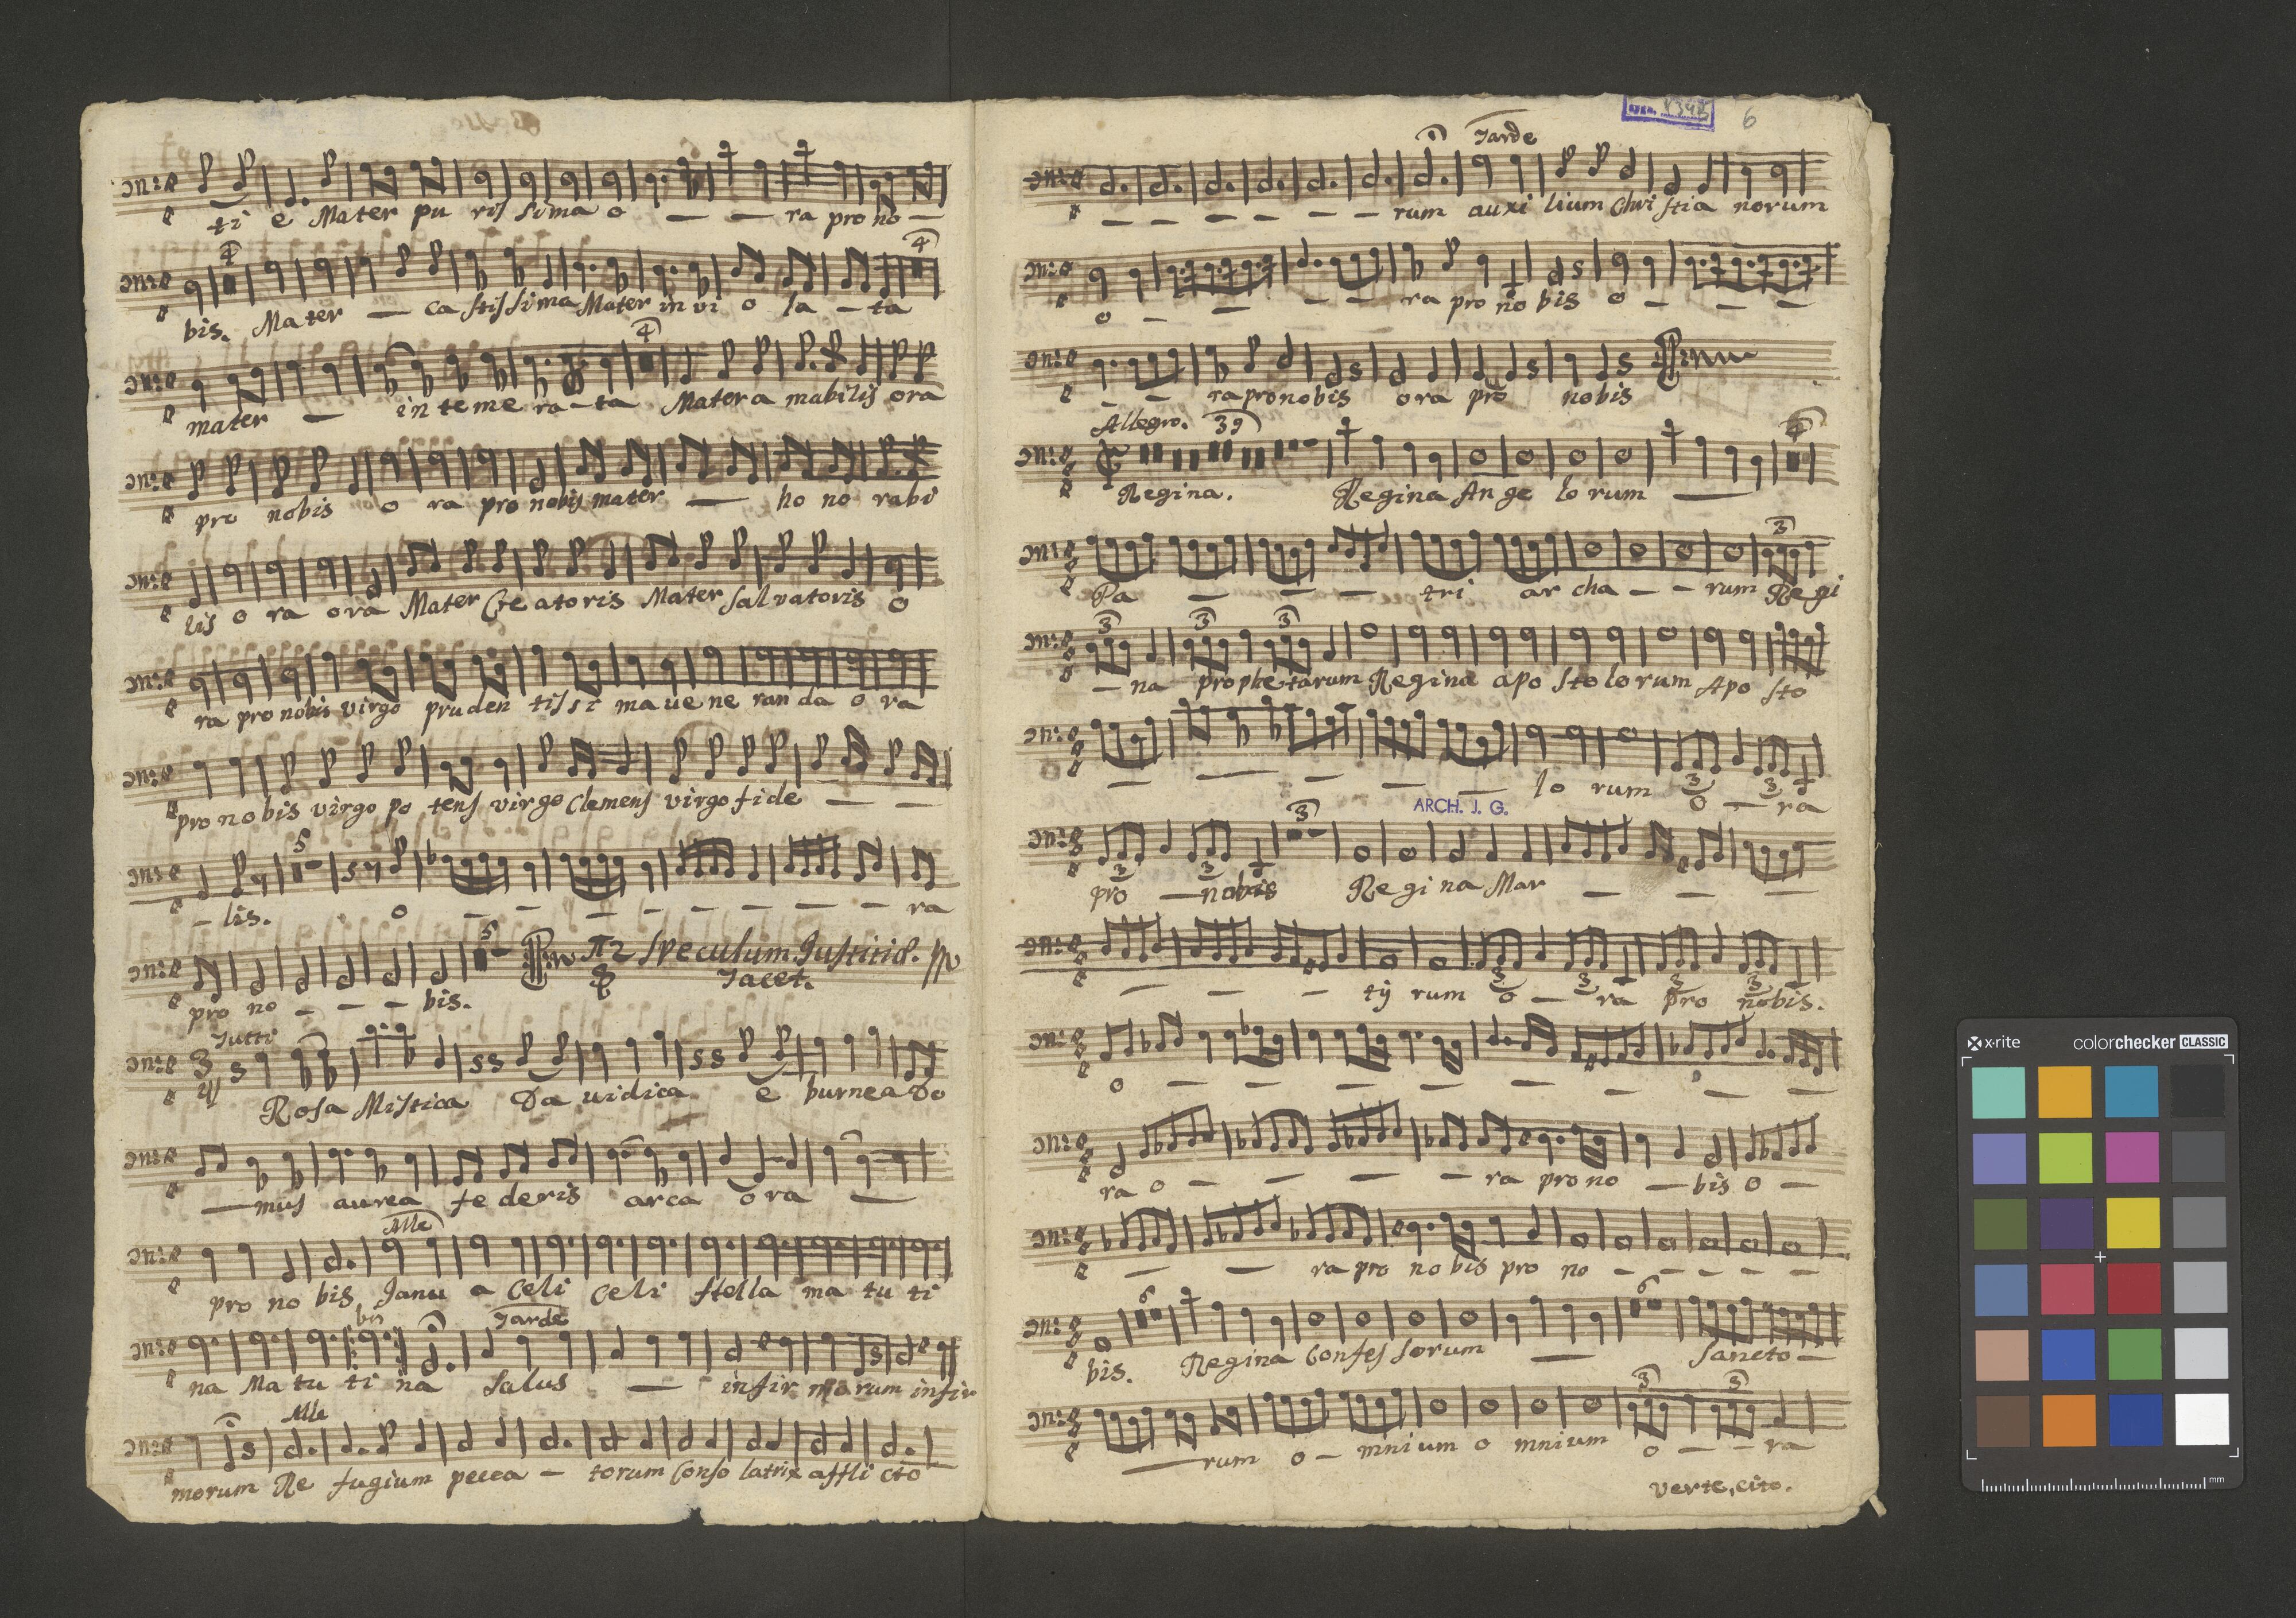 ti e Mater pu rissima o — — ra pro no —
4 4
bis. Mater — castissima Mater invi o la — ta
4
mater — in teme ra - ta Mater a mabilis ora
pro nobis o ra pro nobis mater — ho no rabi
lis o ra ora Mater Creatoris Mater Salvatoris o
ra pro nobis virgo pruden tissi ma ve ne randa o ra
pro nobis virgo po tens virgo Clemens virgo fide — —
5
- lis. o — — — — — — — — ra
5
pro no - — — bis. Speculum Justitiæ.
Tacet.
Tutti
3
Rosa Mistica Da vidica e burnea Do
— mus aurea fe deris arca o ra —
Alle
pro no bis Janu a Celi Celi stella ma tu ti
bis Tarde
na Ma tu ti na Salus — infir morum infir
Alle
morum Re fugium pecca — torum Conso latrix affli cto
1342 6
Tarde
— — — — — — rum auxi lium Chri stia norum
o — — — — ra pro no bis o — — —
— — ra pro nobis ora pro nobis
Allegro. 39 4
Regina. Regina Ange lo rum —
3
Pa — — — tri ar cha — — rum Regi
3 3 3
— na prophetarum Regina apo sto lorum Apo sto
— — — — — lo rum o — ra
3 3
ARCH. J. G.
3
pro — nobis Regina Mar — — —
3 3
— — — tÿ rum o — ra pro nobis.
3 3 3 3
o — — — — — — — —
ra o — — — — ra pro no — bis o —
— — ra pro nobis pro no — — — — —
6 6
bis. Regina Confessorum — Sancto —
3 3
— rum o - mnium o mnium o — — ra
verte, cito.
x·rite colorchecker CLASSIC
mm